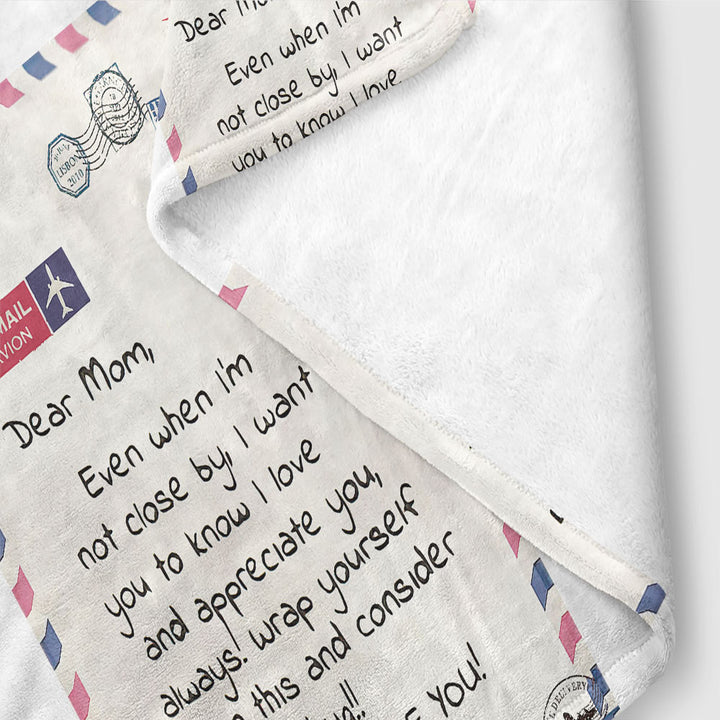 Dear Mom,
Even when I'm
not close by, I want
you to know I love
LISBON
2010
MAIL
AVION
Dear Mom,
Even when I'm
not close by, I want
you to know I love
and appreciate you,
always! Wrap yourself
this and consider
YOU!
DELIVERY